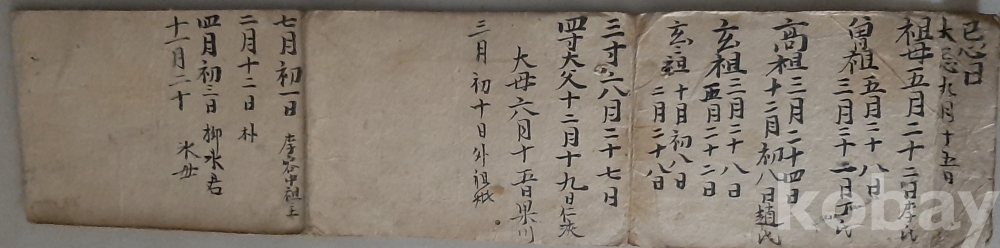 忌日
大忌九月十五日
祖母五月二十二日李氏
曾祖五月二十八日
三月二十二日丁氏
高祖三月二十四日
十二月初八日趙氏
玄祖三月二十八日
五月二十二日
玄祖十月初八日
二月二十八日
三寸八月二十七日
四寸大父十二月十九日仁
大母六月十五日果川
三月初十日外祖
七月初一日
二月十二日朴
四月初三日柳氷君
十一月二十氷母
kobay